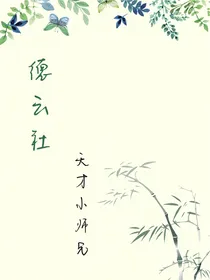 德云社
天才小师兄